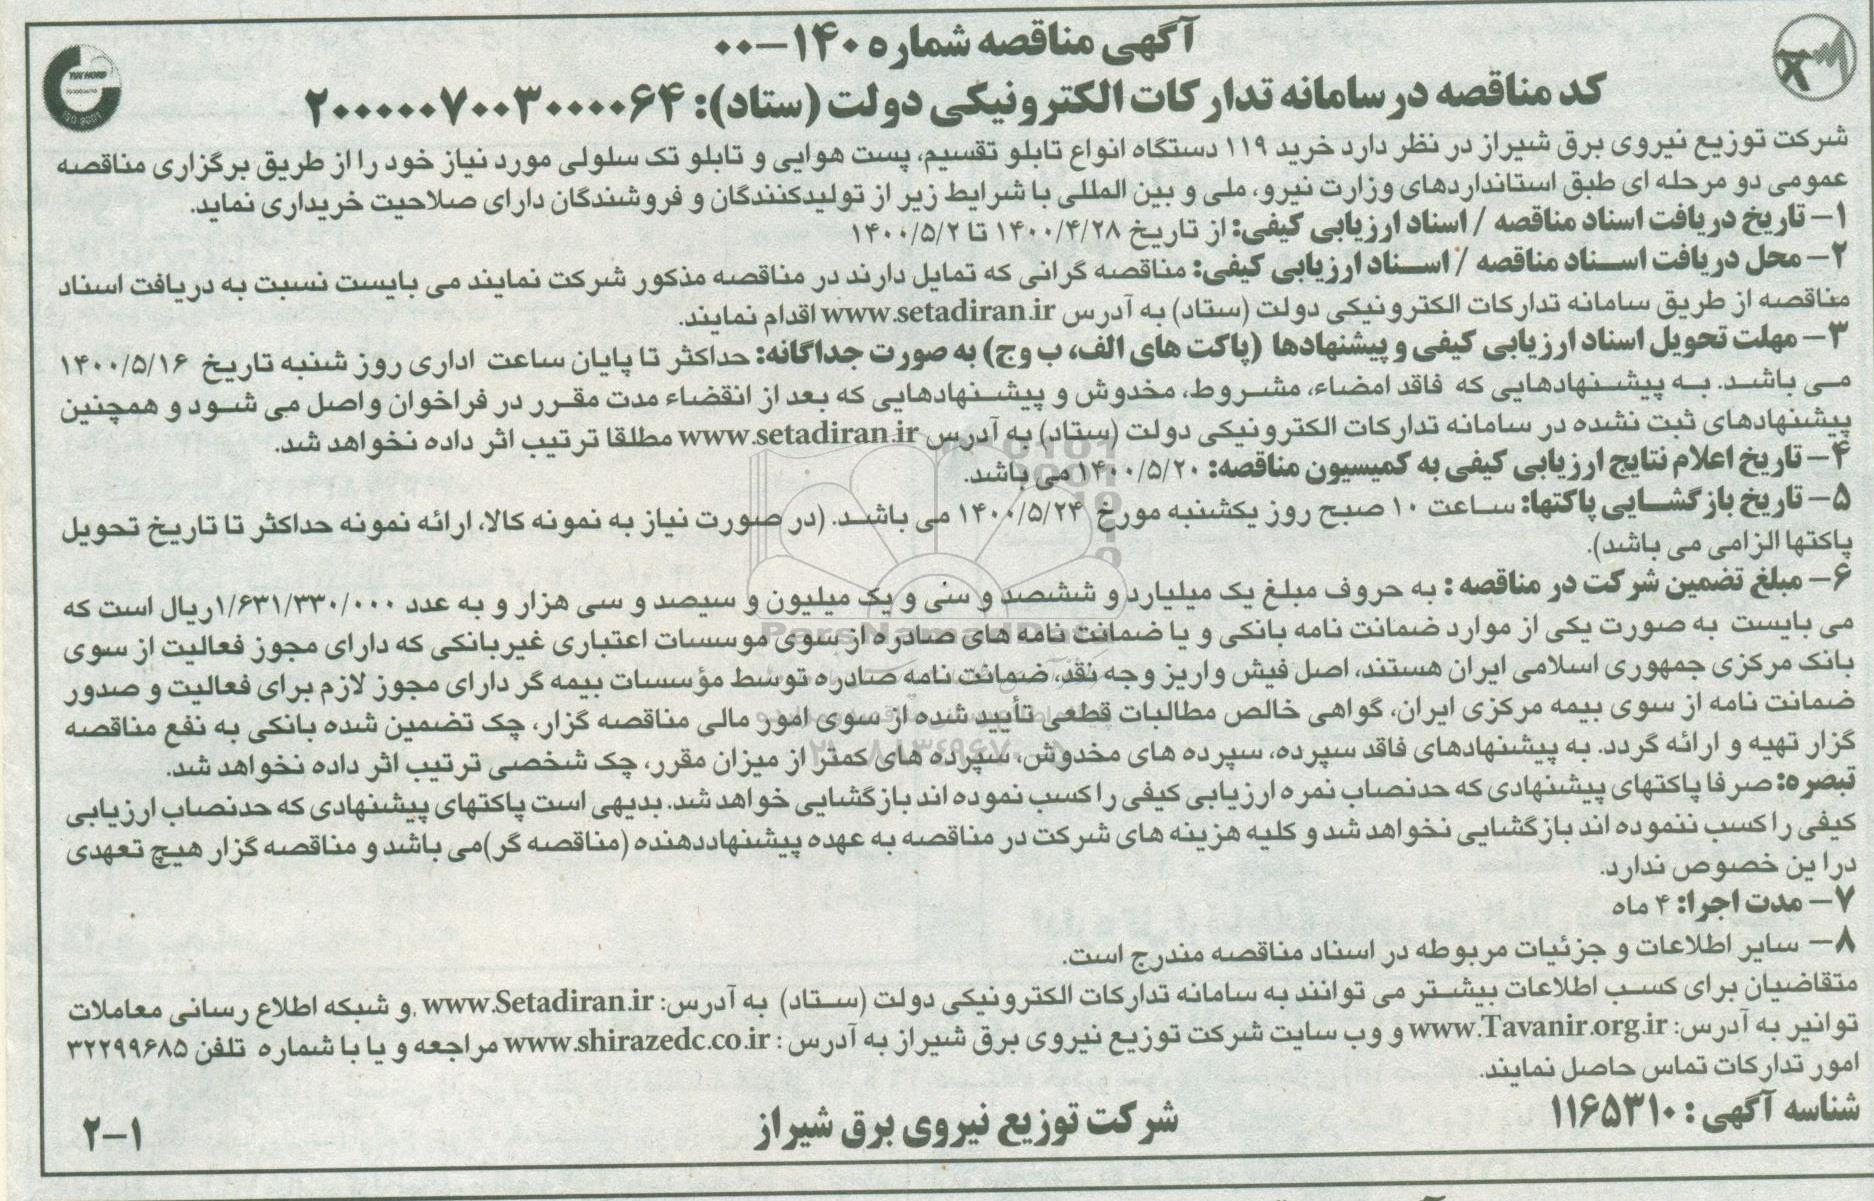 آگهی مناقصه شماره ۱۴۰-۰۰
کد مناقصه در سامانه تدارکات الکترونیکی دولت (ستاد): ۲۰۰۰۰۰۷۰۰۳۰۰۰۰۶۴
TUV NORD
ISO 9001
شرکت توزیع نیروی برق شیراز در نظر دارد خرید ۱۱۹ دستگاه انواع تابلو تقسیم، پست هوایی و تابلو تک سلولی مورد نیاز خود را از طریق برگزاری مناقصه
عمومی دو مرحله ای طبق استانداردهای وزارت نیرو، ملی و بین المللی با شرایط زیر از تولیدکنندگان و فروشندگان دارای صلاحیت خریداری نماید.
۱- تاریخ دریافت اسناد مناقصه / اسناد ارزیابی کیفی: از تاریخ ۱۴۰۰/۴/۲۸ تا ۱۴۰۰/۵/۲
۲- محل دریافت اسناد مناقصه / اسناد ارزیابی کیفی: مناقصه گرانی که تمایل دارند در مناقصه مذکور شرکت نمایند می بایست نسبت به دریافت اسناد
مناقصه از طریق سامانه تدارکات الکترونیکی دولت (ستاد) به آدرس www.setadiran.ir اقدام نمایند.
۳- مهلت تحویل اسناد ارزیابی کیفی و پیشنهادها (پاکت های الف، ب وج) به صورت جداگانه: حداکثر تا پایان ساعت اداری روز شنبه تاریخ ۱۴۰۰/۵/۱۶
می باشد. به پیشنهادهایی که فاقد امضاء، مشروط، مخدوش و پیشنهادهایی که بعد از انقضاء مدت مقرر در فراخوان واصل می شود و همچنین
پیشنهادهای ثبت نشده در سامانه تدارکات الکترونیکی دولت (ستاد) به آدرس www.setadiran.ir مطلقا ترتیب اثر داده نخواهد شد.
۴- تاریخ اعلام نتایج ارزیابی کیفی به کمیسیون مناقصه: ۱۴۰۰/۵/۲۰ می باشد.
۵- تاریخ بازگشایی پاکتها: ساعت ۱۰ صبح روز یکشنبه مورخ ۱۴۰۰/۵/۲۴ می باشد. (در صورت نیاز به نمونه کالا، ارائه نمونه حداکثر تا تاریخ تحویل
پاکتها الزامی می باشد).
۶- مبلغ تضمین شرکت در مناقصه : به حروف مبلغ یک میلیارد و ششصد و سی و یک میلیون و سیصد و سی هزار و به عدد ۱/۶۳۱/۳۳۰/۰۰۰ریال است که
می بایست به صورت یکی از موارد ضمانت نامه بانکی و یا ضمانت نامه های صادره از سوی موسسات اعتباری غیربانکی که دارای مجوز فعالیت از سوی
بانک مرکزی جمهوری اسلامی ایران هستند، اصل فیش واریز وجه نقد، ضمانت نامه صادره توسط مؤسسات بیمه گر دارای مجوز لازم برای فعالیت و صدور
ضمانت نامه از سوی بیمه مرکزی ایران، گواهی خالص مطالبات قطعی تأیید شده از سوی امور مالی مناقصه گزار، چک تضمین شده بانکی به نفع مناقصه
گزار تهیه و ارائه گردد. به پیشنهادهای فاقد سپرده، سپرده های مخدوش، سپرده های کمتر از میزان مقرر، چک شخصی ترتیب اثر داده نخواهد شد.
تبصره: صرفا پاکتهای پیشنهادی که حدنصاب نمره ارزیابی کیفی را کسب نموده اند بازگشایی خواهد شد. بدیهی است پاکتهای پیشنهادی که حدنصاب ارزیابی
کیفی را کسب ننموده اند بازگشایی نخواهد شد و کلیه هزینه های شرکت در مناقصه به عهده پیشنهاددهنده (مناقصه گر)می باشد و مناقصه گزار هیچ تعهدی
دراین خصوص ندارد.
۷- مدت اجرا: ۴ ماه
۸- سایر اطلاعات و جزئیات مربوطه در اسناد مناقصه مندرج است.
متقاضیان برای کسب اطلاعات بیشتر می توانند به سامانه تدارکات الکترونیکی دولت (ستاد) به آدرس: www.Setadiran.ir ,و شبکه اطلاع رسانی معاملات
توانیر به آدرس: www.Tavanir.org.ir و وب سایت شرکت توزیع نیروی برق شیراز به آدرس : www.shirazedc.co.ir مراجعه و یا با شماره تلفن ۳۲۲۹۹۶۸۵
امور تدارکات تماس حاصل نمایند.
شناسه آگهی : ۱۱۶۵۳۱۰
شرکت توزیع نیروی برق شیراز
۲-۱